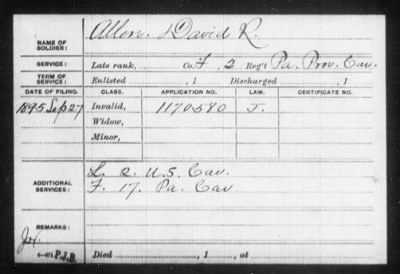 NAME OF SOLDIER: Allen, David R.
SERVICE: Late rank, Co. F, 2 Reg't Pa. Prov. Cav.
TERM OF SERVICE: Enlisted , 1 Discharged , 1
DATE OF FILING. CLASS. APPLICATION NO. LAW. CERTIFICATE NO.
1895 Sep 27 Invalid, 1170580 J.
Widow,
Minor,
ADDITIONAL SERVICES: L. 2. U.S. Cav.
F. 17. Pa. Cav
REMARKS:
P.J.D. Died , 1 , at